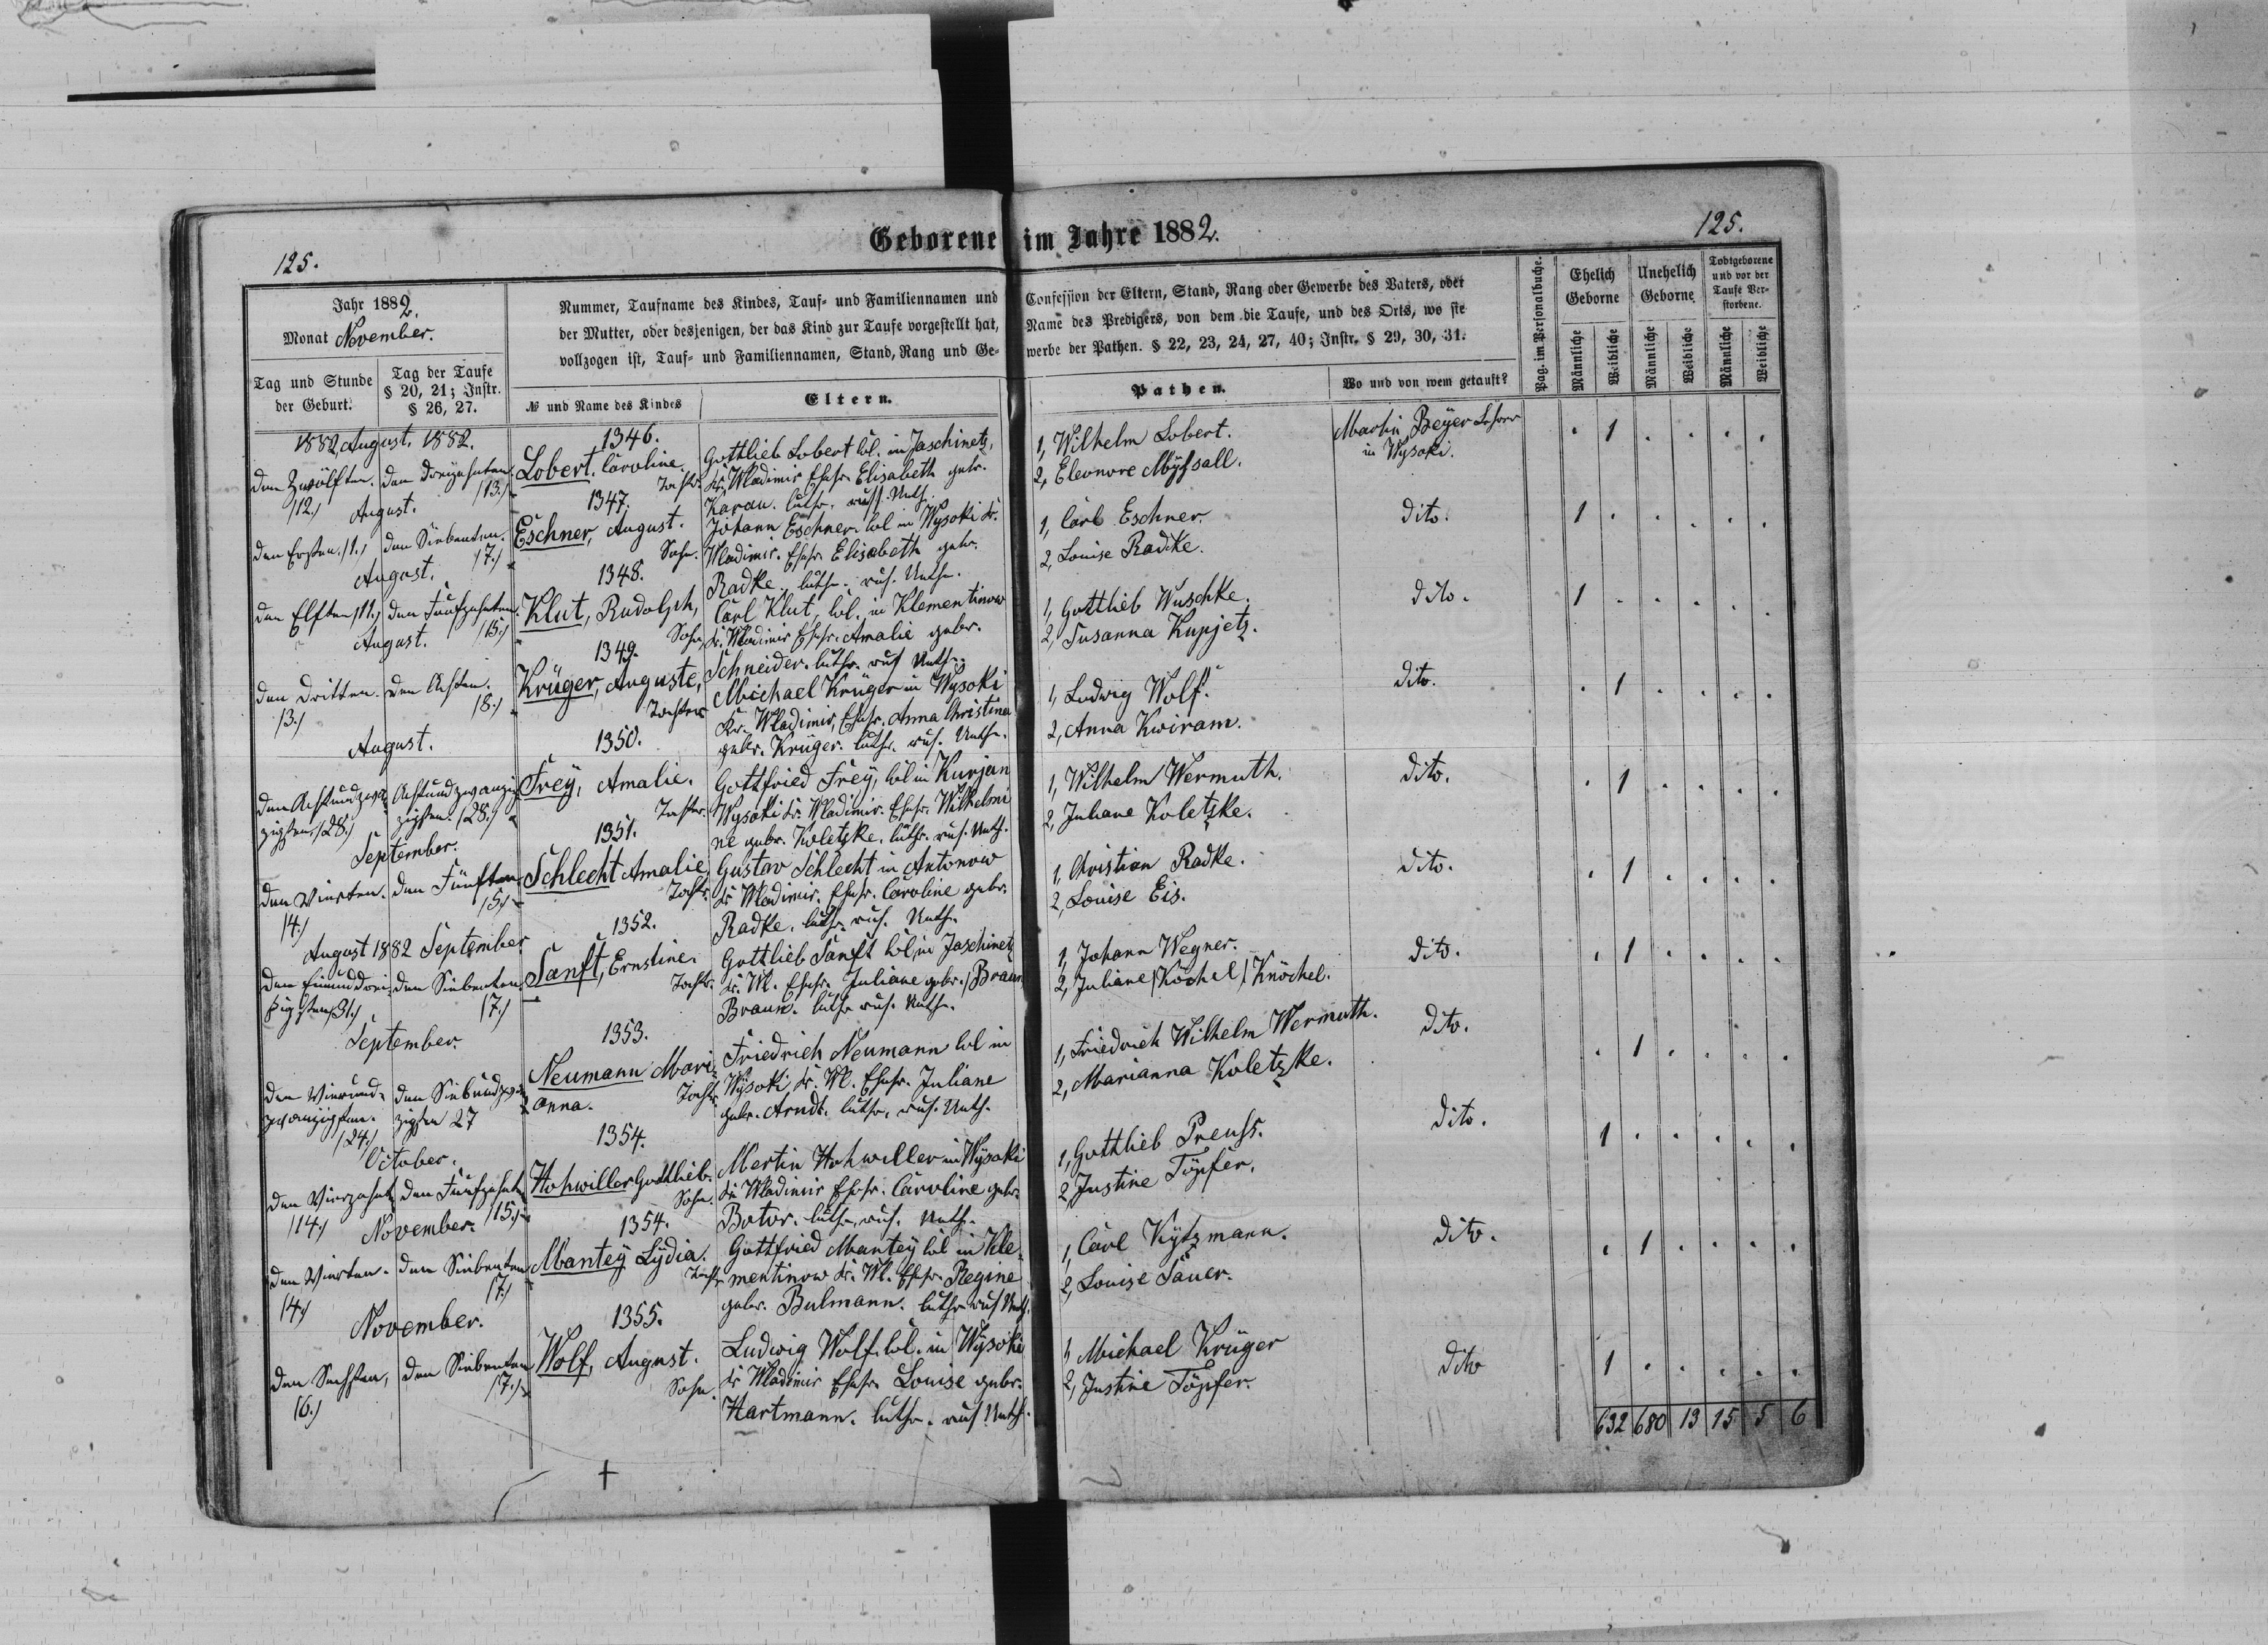 Geborene im Jahre 1882.
125.
125.
Jahr 1882.
Monat November.
Tag und Stunde der Geburt.
Tag der Taufe § 20, 21; Instr. § 26, 27.
Nummer, Taufname des Kindes, Tauf- und Familiennamen und Confession der Eltern, Stand, Rang oder Gewerbe des Vaters, oder
der Mutter, oder desjenigen, der das Kind zur Taufe vorgestellt hat, Name des Predigers, von dem die Taufe, und des Orts, wo sie
vollzogen ist, Tauf- und Familiennamen, Stand, Rang und Gewerbe der Pathen. § 22, 23, 24, 27, 40; Instr. § 29, 30, 31.
№ und Name des Kindes
Eltern.
Pathen.
Wo und von wem getauft?
Pag. im Personalbuche.
Ehelich Geborne
Unehelich Geborne
Todtgeborene und vor der Taufe Verstorbene.
Männliche
Weibliche
Männliche
Weibliche
Männliche
Weibliche
1882, August. 1882.
den Zwölften. den Dreizehnten.
/12./ /13./
1346.
Lobert. Caroline.
Tochter
Gottlieb Lobert lol. in Jaschinetz,
Kr. Wladimir Ehefr. Elisabeth gebr.
Karau. luthr. russ. Unth.
1, Wilhelm Lobert.
2, Eleonore Myssall.
Martin Beyer Lehrer
in Wysoki.
. 1 . . . .
August.
den Ersten. /1./ den Siebenten.
/7./
1347.
Eschner, August.
Sohn.
Johann Eschner. lol in Wysoki Kr.
Wladimir. Ehefr. Elisabeth gebr.
Radke. luthr. rus. Unth.
1, Carl Eschner.
2, Louise Radtke.
dito.
1 . . . . .
August.
den Elften /11./ den Fünfzehnten.
/15./
1348.
Klut, Rudolph,
Sohn
Carl Klut, lol. in Klementinow
Kr. Wladimir Ehefr. Amalie gebr.
Schneider. luthr. rus Unth.
1, Gottlieb Wuschke.
2, Susanna Kupjetz.
dito.
1 . . . . .
August.
den Dritten. den Achten.
/3./ /8./
1349.
Krüger, Auguste,
Tochter
Michael Krüger in Wysoki
Kr. Wladimir, Ehefr. Anna Christina
gebr. Krüger. luthr. rus. Unth.
1, Ludwig Wolf.
2, Anna Kwiram.
dito.
. 1 . . . .
August.
den Achtundzwanzigsten. /28./ Achtundzwanzigsten. /28./
1350.
Frey, Amalie.
Tochter.
Gottfried Frey, lol in Kurjan
Wysoki Kr. Wladimir. Ehefr. Wilhelmine
gebr. Koletzke. luthr. rus. Unth.
1, Wilhelm Wermuth.
2, Juliane Koletzke.
dito.
. 1 . . . .
September.
den Vierten. den Fünften
/4./ /5./
1351.
Schlecht Amalie
Tochtr.
Gustav Schlecht in Antonow
Kr Wladimir. Ehefr. Caroline gebr.
Radke. luthr. rus. Unth.
1, Christian Radke.
2, Louise Eis.
dito.
. 1 . . . .
August 1882 September
den Einunddreißigsten /31./ den Siebenten
/7./
1352.
Sanft, Ernstine.
Tochtr.
Gottlieb Sanft lol, in Jaschinetz
Kr. Wl. Ehefr. Juliane gebr. /Braun
Braun. luthr rus. Unth.
1, Johann Wegner.
2, Juliane /Köchel/ Knöchel.
dito.
. 1 . . . .
September.
den Vierundzwanzigsten. /24./ den Siebundzwanzigsten 27
1353.
Neumann Marianna.
Tochtr.
Friedrich Neumann lol in
Wysoki Kr. Wl. Ehefr. Juliane
gebr. Arndt. luthr, rus. Unth.
1, Friedrich Wilhelm Wermuth.
2, Marianna Koletzke.
dito.
. 1 . . . .
October.
den Vierzehnt den Fünfzehnt
/14./ /15./
1354.
Hohwiller Gottlieb.
Sohn.
Mertin Hohwiller in Wysoki
Kr Wladimir Ehefr. Caroline gebr.
Botor. luthr, rus. Unth.
1, Gottlieb Preuss.
2, Justine Töpfer.
dito.
1 . . . . .
November.
den Vierten. den Siebenten
/4./ /7./
1354.
Mantey Lydia.
Tochtr
Gottfried Mantey lol in Klementinow
Kr. Wl. Ehefr. Regine
gebr. Bulmann. luthr rus Unth.
1, Carl Kytzmann.
2, Louise Sauer.
dito.
. 1 . . . .
November.
den Sechsten, den Siebenten
/6./ /7./
1355.
Wolf, August.
Sohn.
Ludwig Wolf. lol. in Wysoki
Kr Wladimir Ehefr. Louise gebr.
Hartmann. luthr. rus Unth.
1, Michael Krüger
2, Justine Töpfer.
dito
1 . . . . .
632 680 13 15 5 6